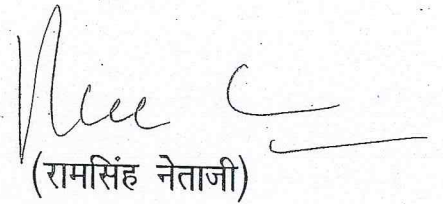 (रामसिंह नेताजी)